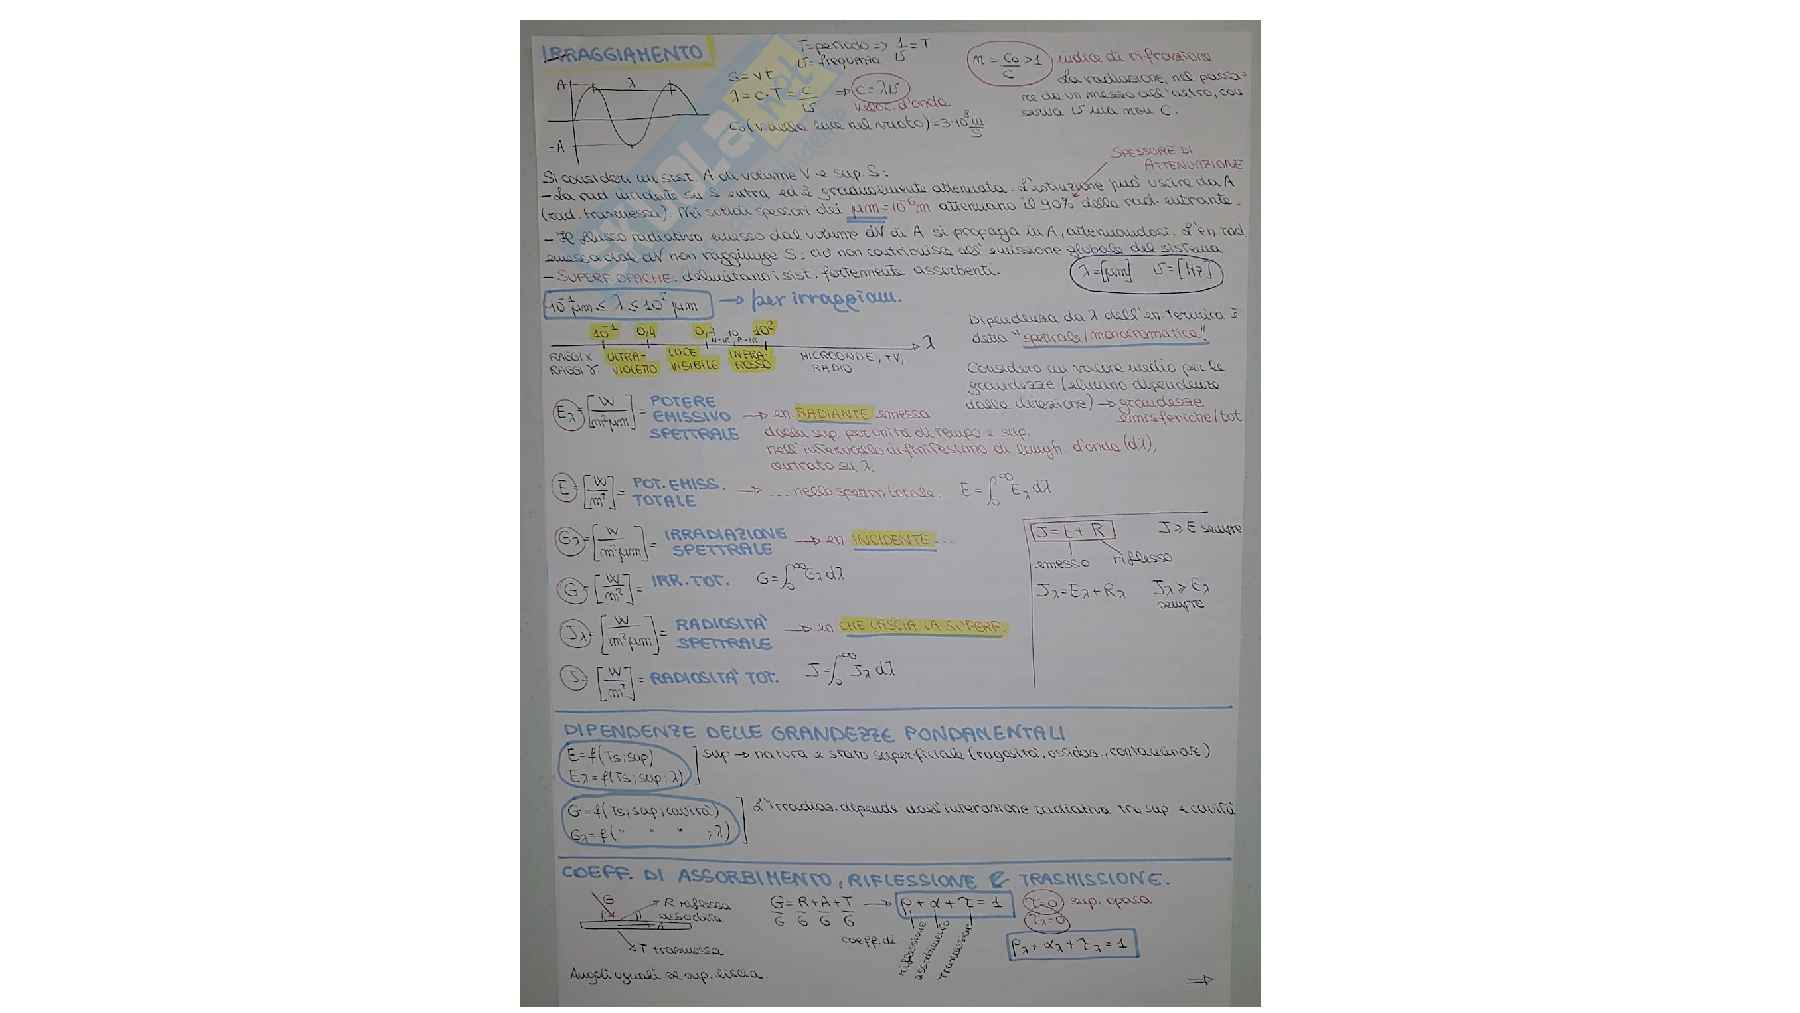 IRRAGGIAMENTO
T=periodo => 1/υ = T
υ=frequenza
S=vt
λ=c·T=c/υ → c=λυ
veloc. d'onda
c₀(v. della luce nel vuoto)=3·10⁸ m/s
n=c₀/c >1 indice di rifrazione
La radiazione, nel passa-
re da un mezzo all'altro, con
serva υ ma non c.
A
λ
-A
SPESSORE DI
ATTENUAZIONE
Si consideri un sist. A di volume V e sup. S:
-La rad incidente su S entra ed è gradualmente attenuata. può uscire da A
(rad. trasmessa). Nei solidi spessori dei μm=10⁻⁶m attenuano il 90% della rad. entrante.
- Il flusso radiativo emesso dal volume dV di A si propaga in A, attenuandosi. L'en rad
emessa dal dV non raggiunge S: ciò non contribuisce all'emissione globale del sistema
-SUPERF OPACHE: delimitano i sist. fortemente assorbenti.
λ=[μm] υ=[Hz]
10⁻¹μm ≤ λ ≤ 10² μm → per irraggiam.
10⁻¹ 0,4 0,7 10 10² λ
RAGGI X ULTRA- LUCE INFRA- MICROONDE, TV,
RAGGI γ VIOLETTO VISIBILE ROSSO RADIO
Dipendenza da λ dell'en. termica è
detta "spettrale/monocromatica".
Considero un valore medio per le
grandezze (elimino dipendenza
dalla direzione) → grandezze
emisferiche/tot
Eλ=[W/m²μm]= POTERE
EMISSIVO
SPETTRALE
→ en RADIANTE emessa
dalla sup. per unità di tempo e sup.
nell'intervallo infinitesimo di lungh. d'onda (dλ),
centrato su λ.
E=[W/m²]= POT. EMISS.
TOTALE
→ ... nello spettro totale. E=∫₀^∞ Eλ dλ
Gλ=[W/m²μm]= IRRADIAZIONE
SPETTRALE
→ en INCIDENTE ...
G=[W/m²]= IRR. TOT. G=∫₀^∞ Gλ dλ
Jλ=[W/m²μm]= RADIOSITA'
SPETTRALE
→ en CHE LASCIA LA SUPERF.
J=[W/m²]= RADIOSITA' TOT. J=∫₀^∞ Jλ dλ
J=E+R J≥E sempre
emesso riflesso
Jλ=Eλ+Rλ Jλ≥Eλ
sempre
DIPENDENZE DELLE GRANDEZZE FONDAMENTALI
E=f(Ts; sup)
Eλ=f(Ts; sup; λ)
sup → natura e stato superficiale (rugosità, ossidaz., contaminaz)
G=f(Ts; sup; cavità)
Gλ=f(" " " ;λ)
L'irradiaz. dipende dall'interazione radiativa tra sup e cavità
COEFF. DI ASSORBIMENTO, RIFLESSIONE E TRASMISSIONE.
G
R riflessa
assorbita
T trasmessa
Angoli uguali se sup. liscia
G/G=R/G+A/G+T/G → ρ+α+τ=1
coeff. di
riflessione
assorbimento
trasmissione
τ=0 sup. opaca
τλ=0
ρλ+αλ+τλ=1
⇒